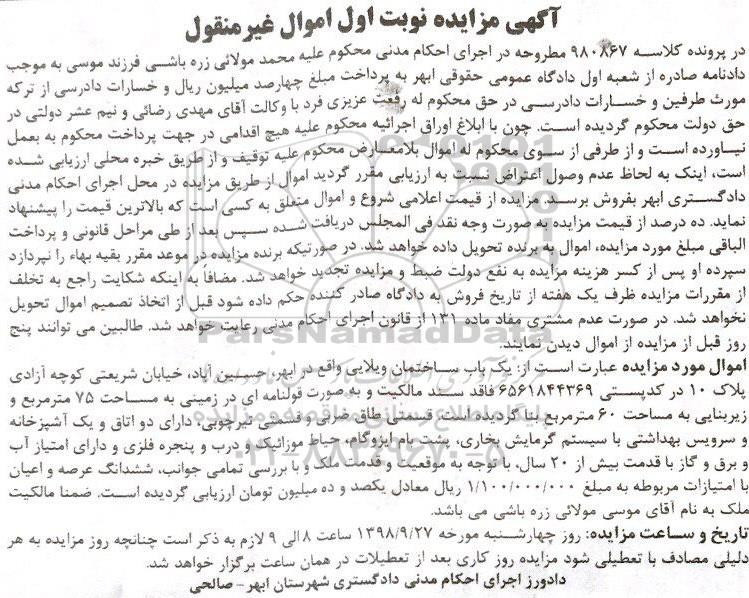 آگهی مزایده نوبت اول اموال غیرمنقول
در پرونده کلاسه ۹۸۰۸۶۷ مطروحه در اجرای احکام مدنی محکوم علیه محمد مولائی زره باشی فرزند موسی به موجب
دادنامه صادره از شعبه اول دادگاه عمومی حقوقی ابهر به پرداخت مبلغ چهارصد میلیون ریال و خسارات دادرسی از ترکه
مورث طرفین و خسارات دادرسی در حق محکوم له رفعت عزیزی فرد با وکالت آقای مهدی رضائی و نیم عشر دولتی در
حق دولت محکوم گردیده است. چون با ابلاغ اوراق اجرائیه محکوم علیه هیچ اقدامی در جهت پرداخت محکوم به بعمل
نیاورده است و از طرفی از سوی محکوم له اموال بلامعارض محکوم علیه توقیف و از طریق خبره محلی ارزیابی شده
است، اینک به لحاظ عدم وصول اعتراض نسبت به ارزیابی مقرر گردید اموال از طریق مزایده در محل اجرای احکام مدنی
دادگستری ابهر بفروش برسد. مزایده از قیمت اعلامی شروع و اموال متعلق به کسی است که بالاترین قیمت را پیشنهاد
نماید. ده درصد از قیمت مزایده به صورت وجه نقد فی المجلس دریافت شده سپس بعد از طی مراحل قانونی و پرداخت
الباقی مبلغ مورد مزایده، اموال به برنده تحویل داده خواهد شد. در صورتیکه برنده مزایده در موعد مقرر بقیه بهاء را نپردازد
سپرده او پس از کسر هزینه مزایده به نفع دولت ضبط و مزایده تجدید خواهد شد. مضافاً به اینکه شکایت راجع به تخلف
از مقررات مزایده ظرف یک هفته از تاریخ فروش به دادگاه صادر کننده حکم داده شود قبل از اتخاذ تصمیم اموال تحویل
نخواهد شد. در صورت عدم مشتری مفاد ماده ۱۳۱ از قانون اجرای احکام مدنی رعایت خواهد شد. طالبین می توانند پنج
روز قبل از مزایده از اموال دیدن نمایند.
اموال مورد مزایده عبارت است از: یک باب ساختمان ویلایی واقع در ابهر، حسین آباد، خیابان شریعتی کوچه آزادی
پلاک ۱۰ در کدپستی ۶۵۶۱۸۴۴۳۶۹ فاقد سند مالکیت و به صورت قولنامه ای در زمینی به مساحت ۷۵ مترمربع و
زیربنایی به مساحت ۶۰ مترمربع بنا گردیده است، قسمتی طاق ضربی و قسمتی تیرچوبی، دارای دو اتاق و یک آشپزخانه
و سرویس بهداشتی با سیستم گرمایش بخاری، پشت بام ایزوگام، حیاط موزائیک و درب و پنجره فلزی و دارای امتیاز آب
و برق و گاز با قدمت بیش از ۲۰ سال، با توجه به موقعیت و قدمت ملک و با بررسی تمامی جوانب، ششدانگ عرصه و اعیان
با امتیازات مربوطه به مبلغ ۱/۱۰۰/۰۰۰/۰۰۰ ریال معادل یکصد و ده میلیون تومان ارزیابی گردیده است. ضمنا مالکیت
ملک به نام آقای موسی مولائی زره باشی می باشد.
تاریخ و ساعت مزایده: روز چهارشنبه مورخه ۱۳۹۸/۹/۲۷ ساعت ۸ الی ۹ لازم به ذکر است چنانچه روز مزایده به هر
دلیلی مصادف با تعطیلی شود مزایده روز کاری بعد از تعطیلات در همان ساعت برگزار خواهد شد.
دادورز اجرای احکام مدنی دادگستری شهرستان ابهر - صالحی
ParsNamadData
پایگاه اطلاع رسانی مناقصه و مزایده
۰۲۱-۸۸۳۴۹۶۷۰-۵